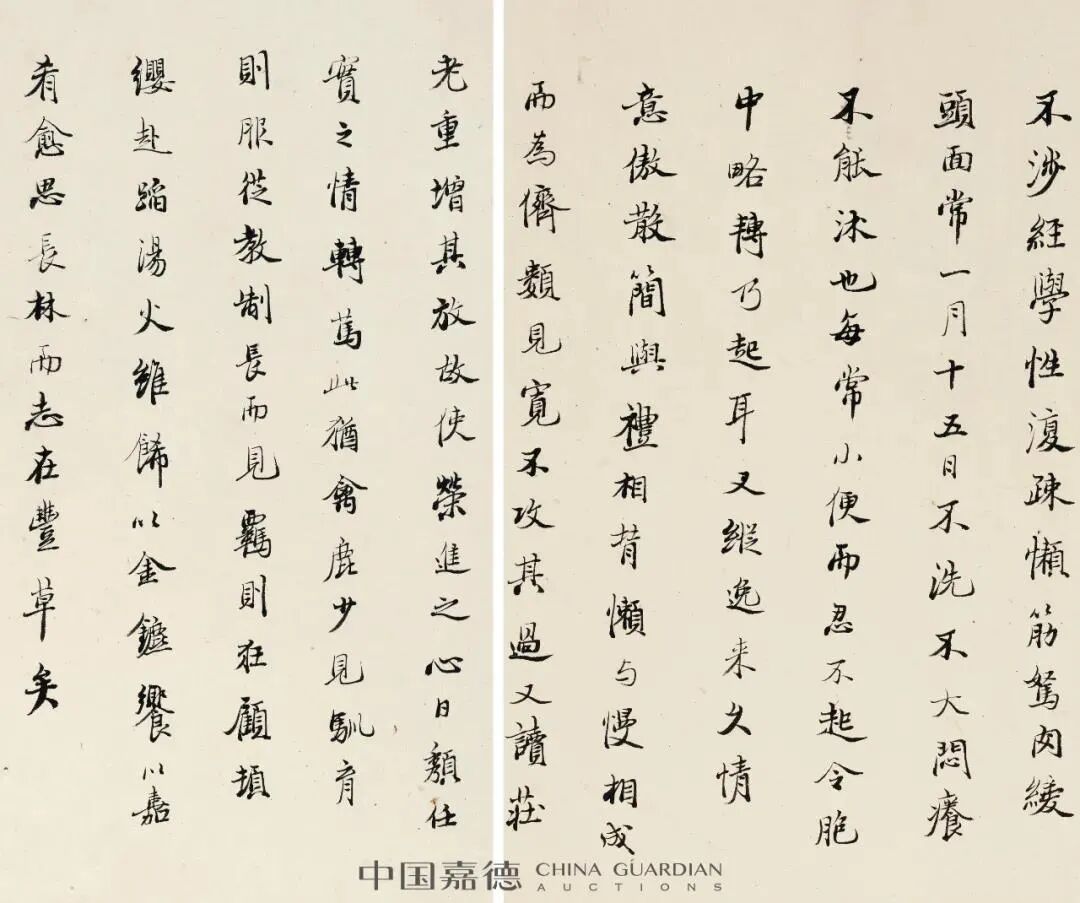 不涉經學性復疎懶筋駑肉緩
頭面常一月十五日不洗不大悶癢
不能沐也每常小便而忍不起令胞
中略轉乃起耳又縱逸来久情
意傲散簡與禮相背懶与慢相成
而為儕類見寛不攻其過又讀莊
老重增其放故使榮進之心日頽任
實之情轉篤此猶禽鹿少見馴育
則服從教制長而見羈則狂顧頓
纓赴蹈湯火雖飾以金鑣饗以嘉
肴愈思長林而志在豐草矣
中国嘉德 CHINA GUARDIAN
AUCTIONS